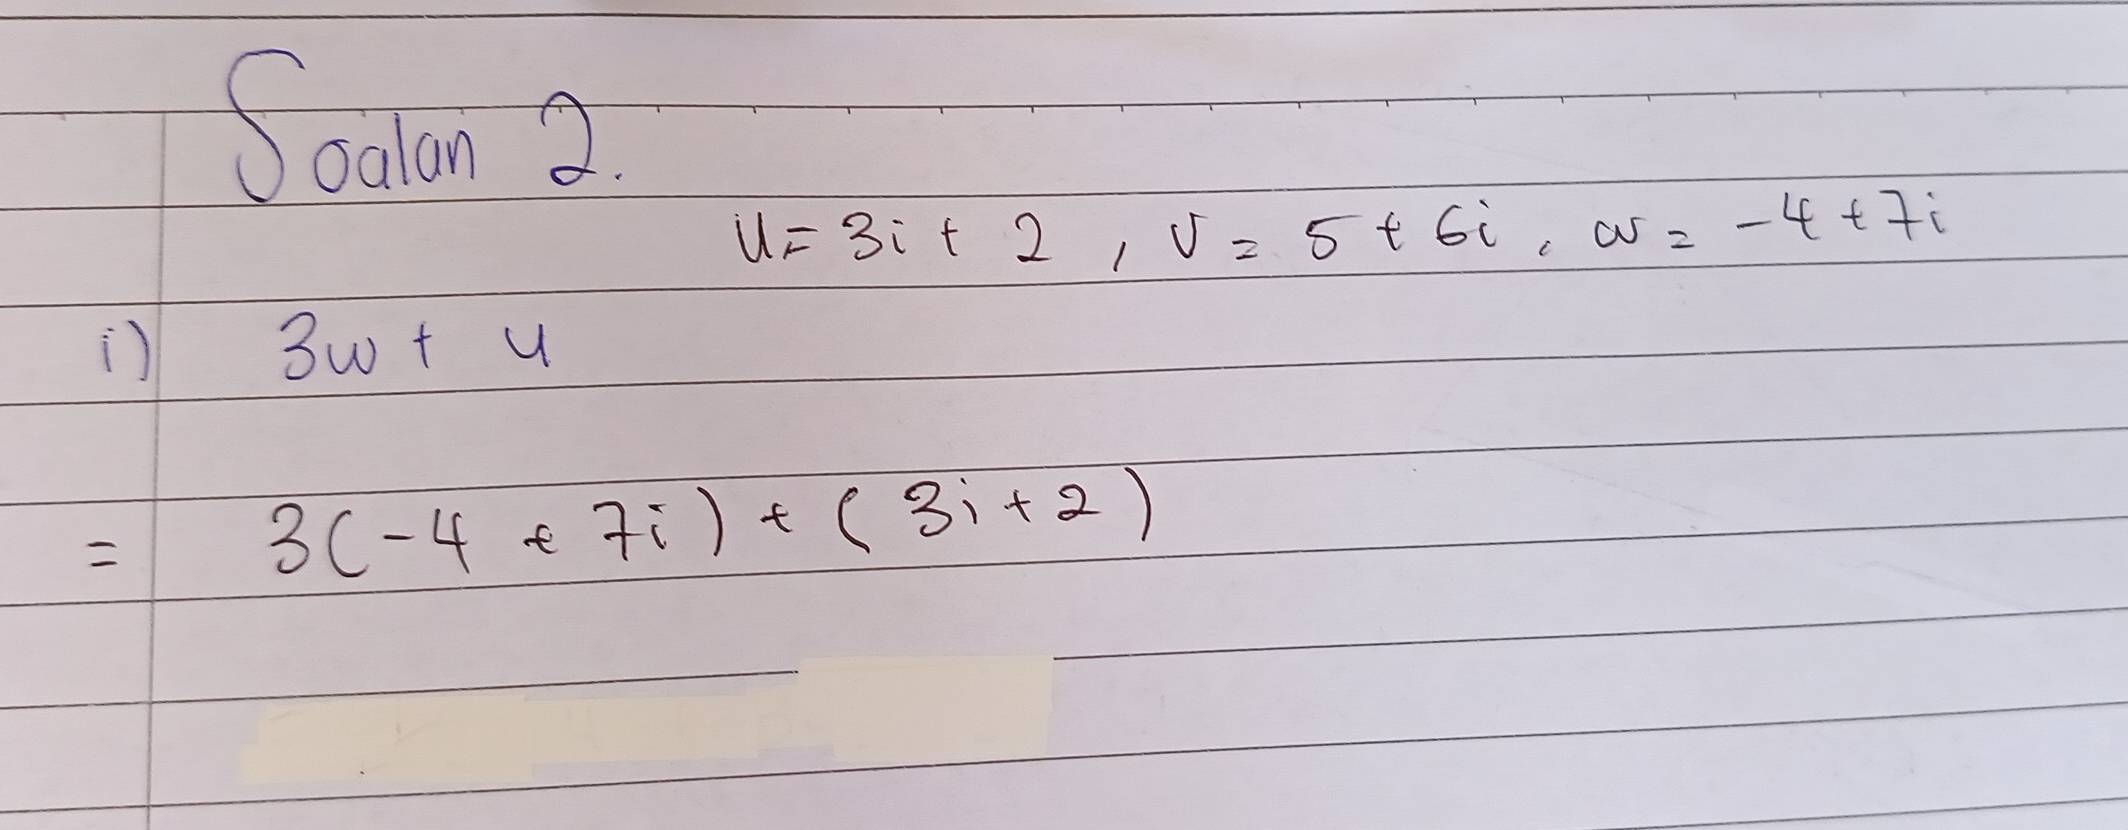 Soalan 2.
u = 3i + 2 , v = 5 + 6i , w = -4 + 7i
i) 3w + u
= 3(-4 + 7i) + (3i + 2)